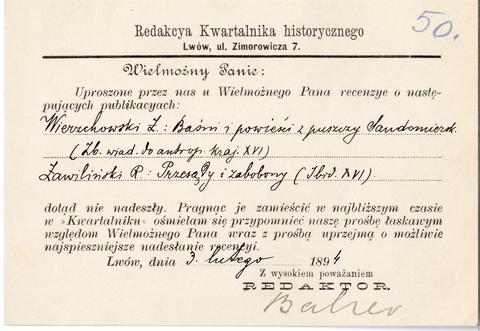 50.
Redakcya Kwartalnika historycznego
Lwów, ul. Zimorowicza 7.
Wielmożny Panie:
Uproszone przez nas u Wielmożnego Pana recenzye o nastę-
pujących publikacyach:
Wierzchowski Z.: Baśni i powieści z puszczy Sandomiersk.
(Zb. wiad. do antrop. kraj. XVI)
Zawiliński R.: Przesądy i zabobony (Ibid. XVI).
dotąd nie nadeszły. Pragnąc je zamieścić w najbliższym czasie
w »Kwartalniku« ośmielam się przypomnieć naszę prośbę łaskawym
względom Wielmożnego Pana wraz z prośbą uprzejmą o możliwie
najspieszniejsze nadesłanie recenzyi.
Lwów, dnia 3. lutego 1894
Z wysokiem poważaniem
REDAKTOR.
Balzer